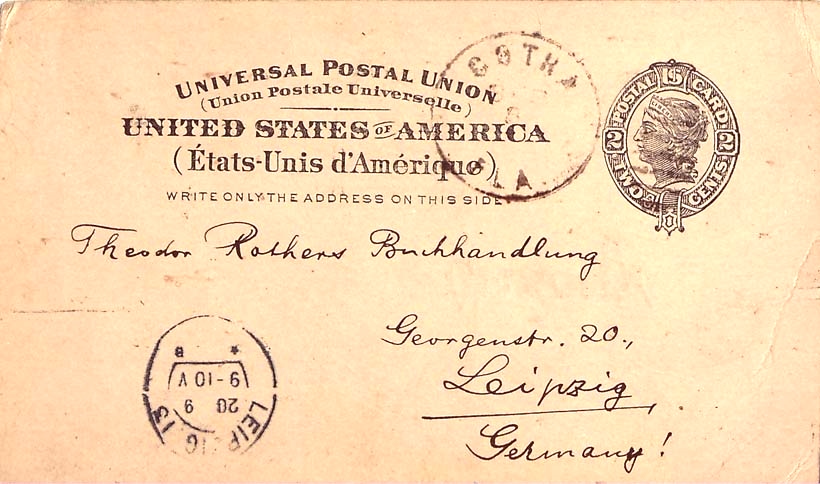 UNIVERSAL POSTAL UNION
(Union Postale Universelle)
UNITED STATES OF AMERICA
(États-Unis d'Amérique)
WRITE ONLY THE ADDRESS ON THIS SIDE
GOTHA
LA
POSTAL 1S CARD
2 2
TWO CENTS
Theodor Rothers Buchhandlung
Georgenstr. 20.,
Leipzig,
Germany!
* B
9-10 V
20 9
LEIPZIG 13